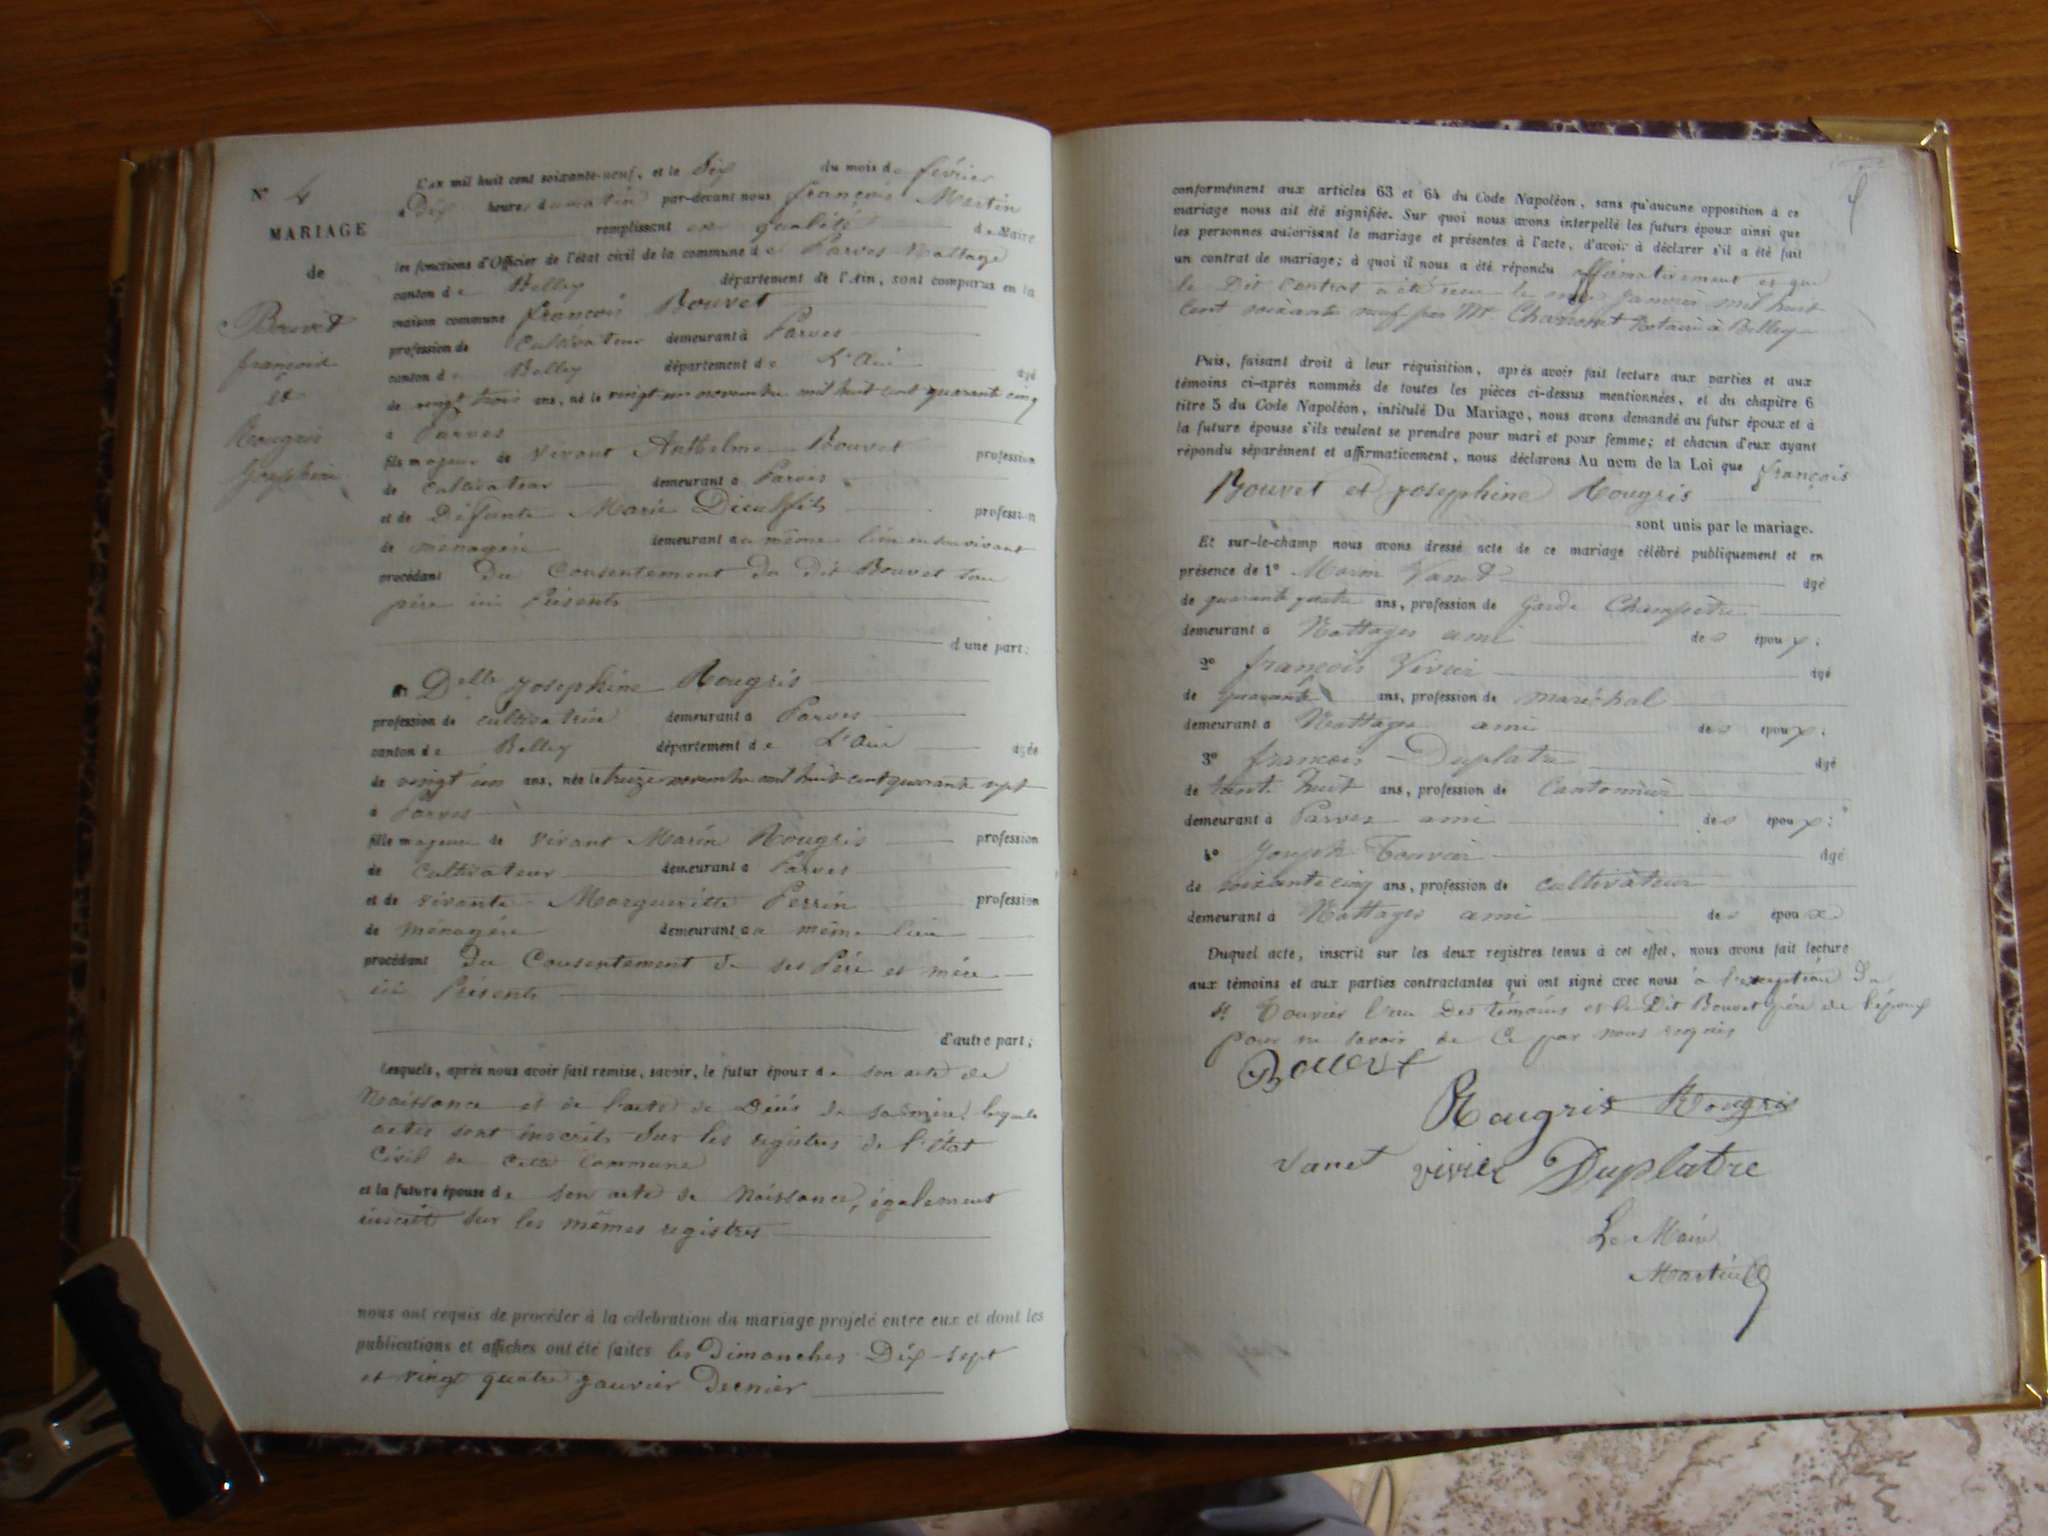 N° 4
MARIAGE
de
Bouvet
françois
et
Rougris
Josephine
L'an mil huit cent soixante-neuf, et le Dix du mois de février
à Dix heures du matin par-devant nous françois Martin
remplissant en qualité de Maire
les fonctions d'Officier de l'état civil de la commune de Parves-Nattage
canton de Belley département de l'Ain, sont comparus en la
maison commune françois Bouvet
profession de Cultivateur demeurant à Parves
canton de Belley département de L'Ain âgé
de vingt trois ans, né le vingt un novembre mil huit cent quarante cinq
à Parves
fils majeur de vivant Anthelme Bouvet profession
de cultivateur demeurant à Parves
et de Défunte Marie profession
de ménagère demeurant au même lieu en son vivant
procédant Du Consentement du dit Bouvet son
père ici Présent
d'une part;
et Delle Josephine Rougris
profession de cultivatrice demeurant à Parves
canton de Belley département de L'Ain âgée
de vingt un ans, née le treize novembre mil huit cent quarante sept
à Parves
fille majeure de vivant Marin Rougris profession
de cultivateur demeurant à Parves
et de vivante Margueritte Perrin profession
de ménagère demeurant au même lieu
procédant Du Consentement de ses Père et mère
ici Présents
d'autre part;
Lesquels, après nous avoir fait remise, savoir, le futur époux de son acte de
Naissance et de l'acte de Décès de sa mère, lesquels
actes sont inscrits sur les registres de l'état
Civil de cette Commune
et la future épouse de son acte de Naissance, également
inscrit sur les mêmes registres
nous ont requis de procéder à la célébration du mariage projeté entre eux et dont les
publications et affiches ont été faites les Dimanches Dix-sept
et vingt quatre janvier Dernier
conformément aux articles 63 et 64 du Code Napoléon, sans qu'aucune opposition à ce
mariage nous ait été signifiée. Sur quoi nous avons interpellé les futurs époux ainsi que
les personnes autorisant le mariage et présentes à l'acte, d'avoir à déclarer s'il a été fait
un contrat de mariage; à quoi il nous a été répondu affirmativement et que
le Dit Contrat a été recu le janvier mil huit
Cent soixante neuf par Mr Notaire à Belley
Puis, faisant droit à leur réquisition, après avoir fait lecture aux parties et aux
témoins ci-après nommés de toutes les pièces ci-dessus mentionnées, et du chapitre 6
titre 5 du Code Napoléon, intitulé Du Mariage, nous avons demandé au futur époux et à
la future épouse s'ils veulent se prendre pour mari et pour femme; et chacun d'eux ayant
répondu séparément et affirmativement, nous déclarons Au nom de la Loi que françois
Bouvet et Josephine Rougris
sont unis par le mariage.
Et sur-le-champ nous avons dressé acte de ce mariage célébré publiquement et en
présence de 1° Marin Vanet âgé
de quarante quatre ans, profession de Garde Champêtre
demeurant à Nattages ami des époux;
2° françois Vivier âgé
de quarante ans, profession de maréchal
demeurant à Nattages ami des époux;
3° françois Duplatre âgé
de trente huit ans, profession de Cantonnier
demeurant à Parves ami des époux;
4° Joseph Touvier âgé
de soixante cinq ans, profession de cultivateur
demeurant à Nattages ami des époux
Duquel acte, inscrit sur les deux registres tenus à cet effet, nous avons fait lecture
aux témoins et aux parties contractantes qui ont signé avec nous à l'exception du
Sr Touvier l'un Des témoins et le Dit Bouvet père de l'époux
pour ne savoir de Ce par nous requis
Bouvet
Rougris Rougris
Vanet vivier Duplatre
Le Maire
Martin